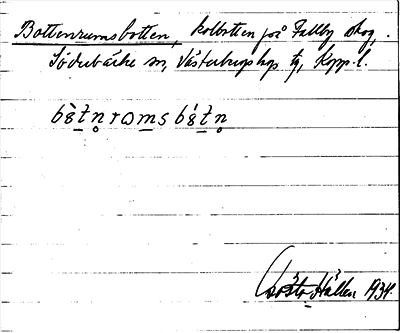 Bottenrumsbotten, kolbotten på Fallby skog,
Söderbärke sn, Västerbergslags tg, Kopp. l.
bètnrωmsbétn
Gösta Hållen 1934